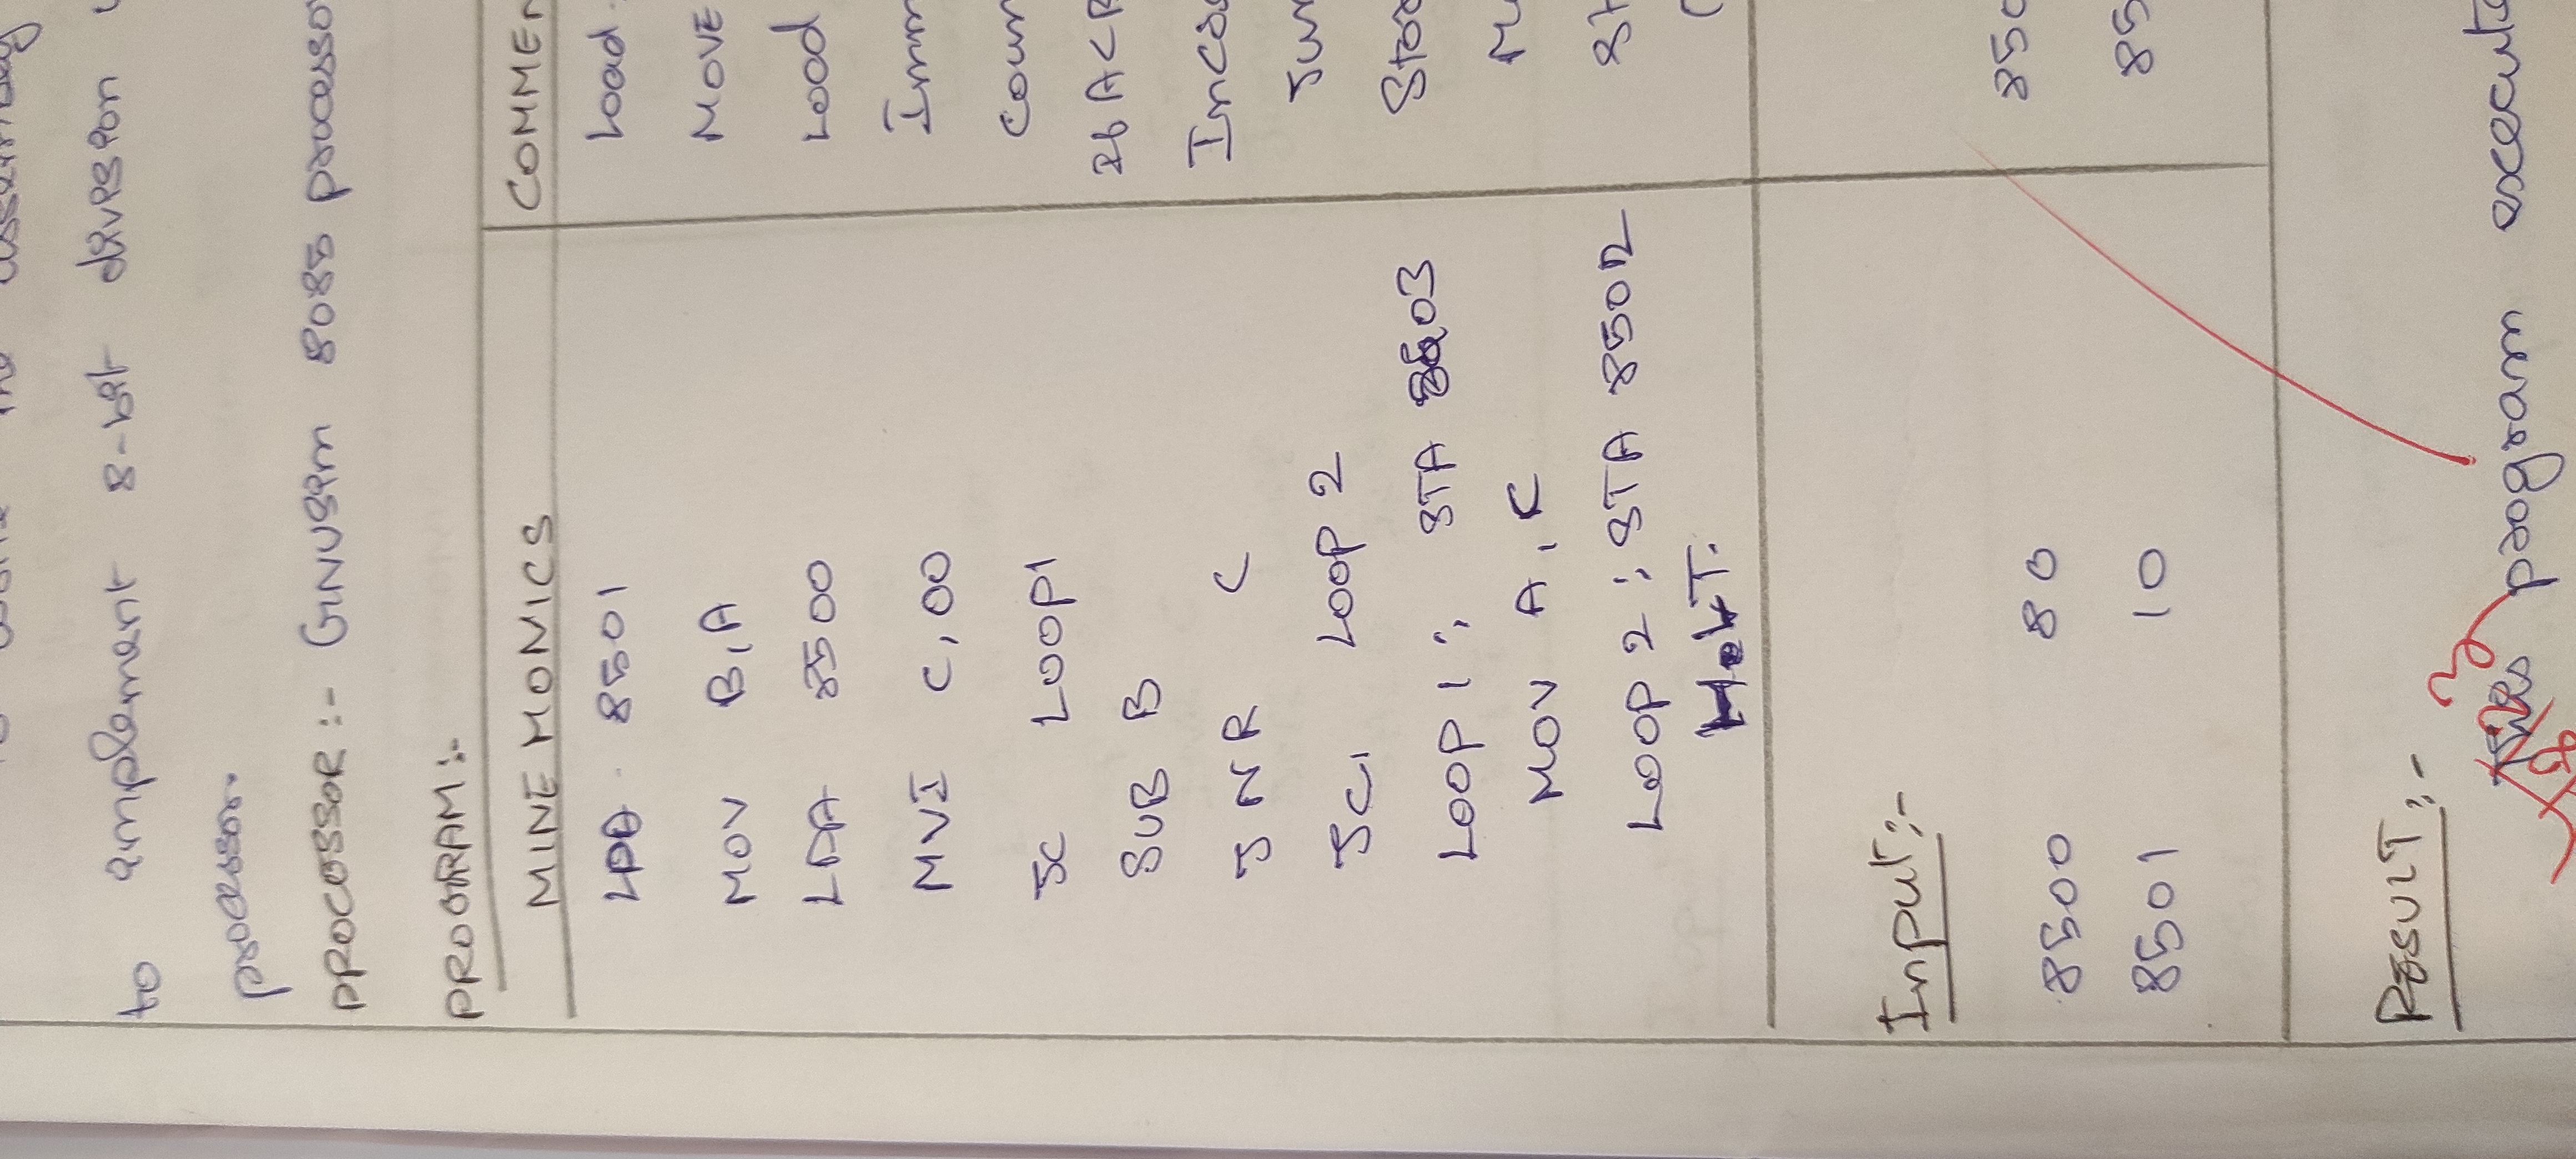 to write the assembly
to implement 8-bit division
processor.
PROCOSSOR :- GINUSim 8085 processo
PROGRAM :-
MINEMONICS COMMEN
LDA 8501 Load
MOV B,A MOVE
LDA 8500 Load
MVI C,00 Imm
JC LOOP1 Coun
SUB B If A<B
JNR C Incos
JC, LOOP 2 Jum
LOOP 1 : STA 8503 Stoo
MOV A, C Mo
LOOP 2 : STA 8502 St
HaLT.
Input :-
8500 80 850
8501 10 85
RESULT :-
This program execute